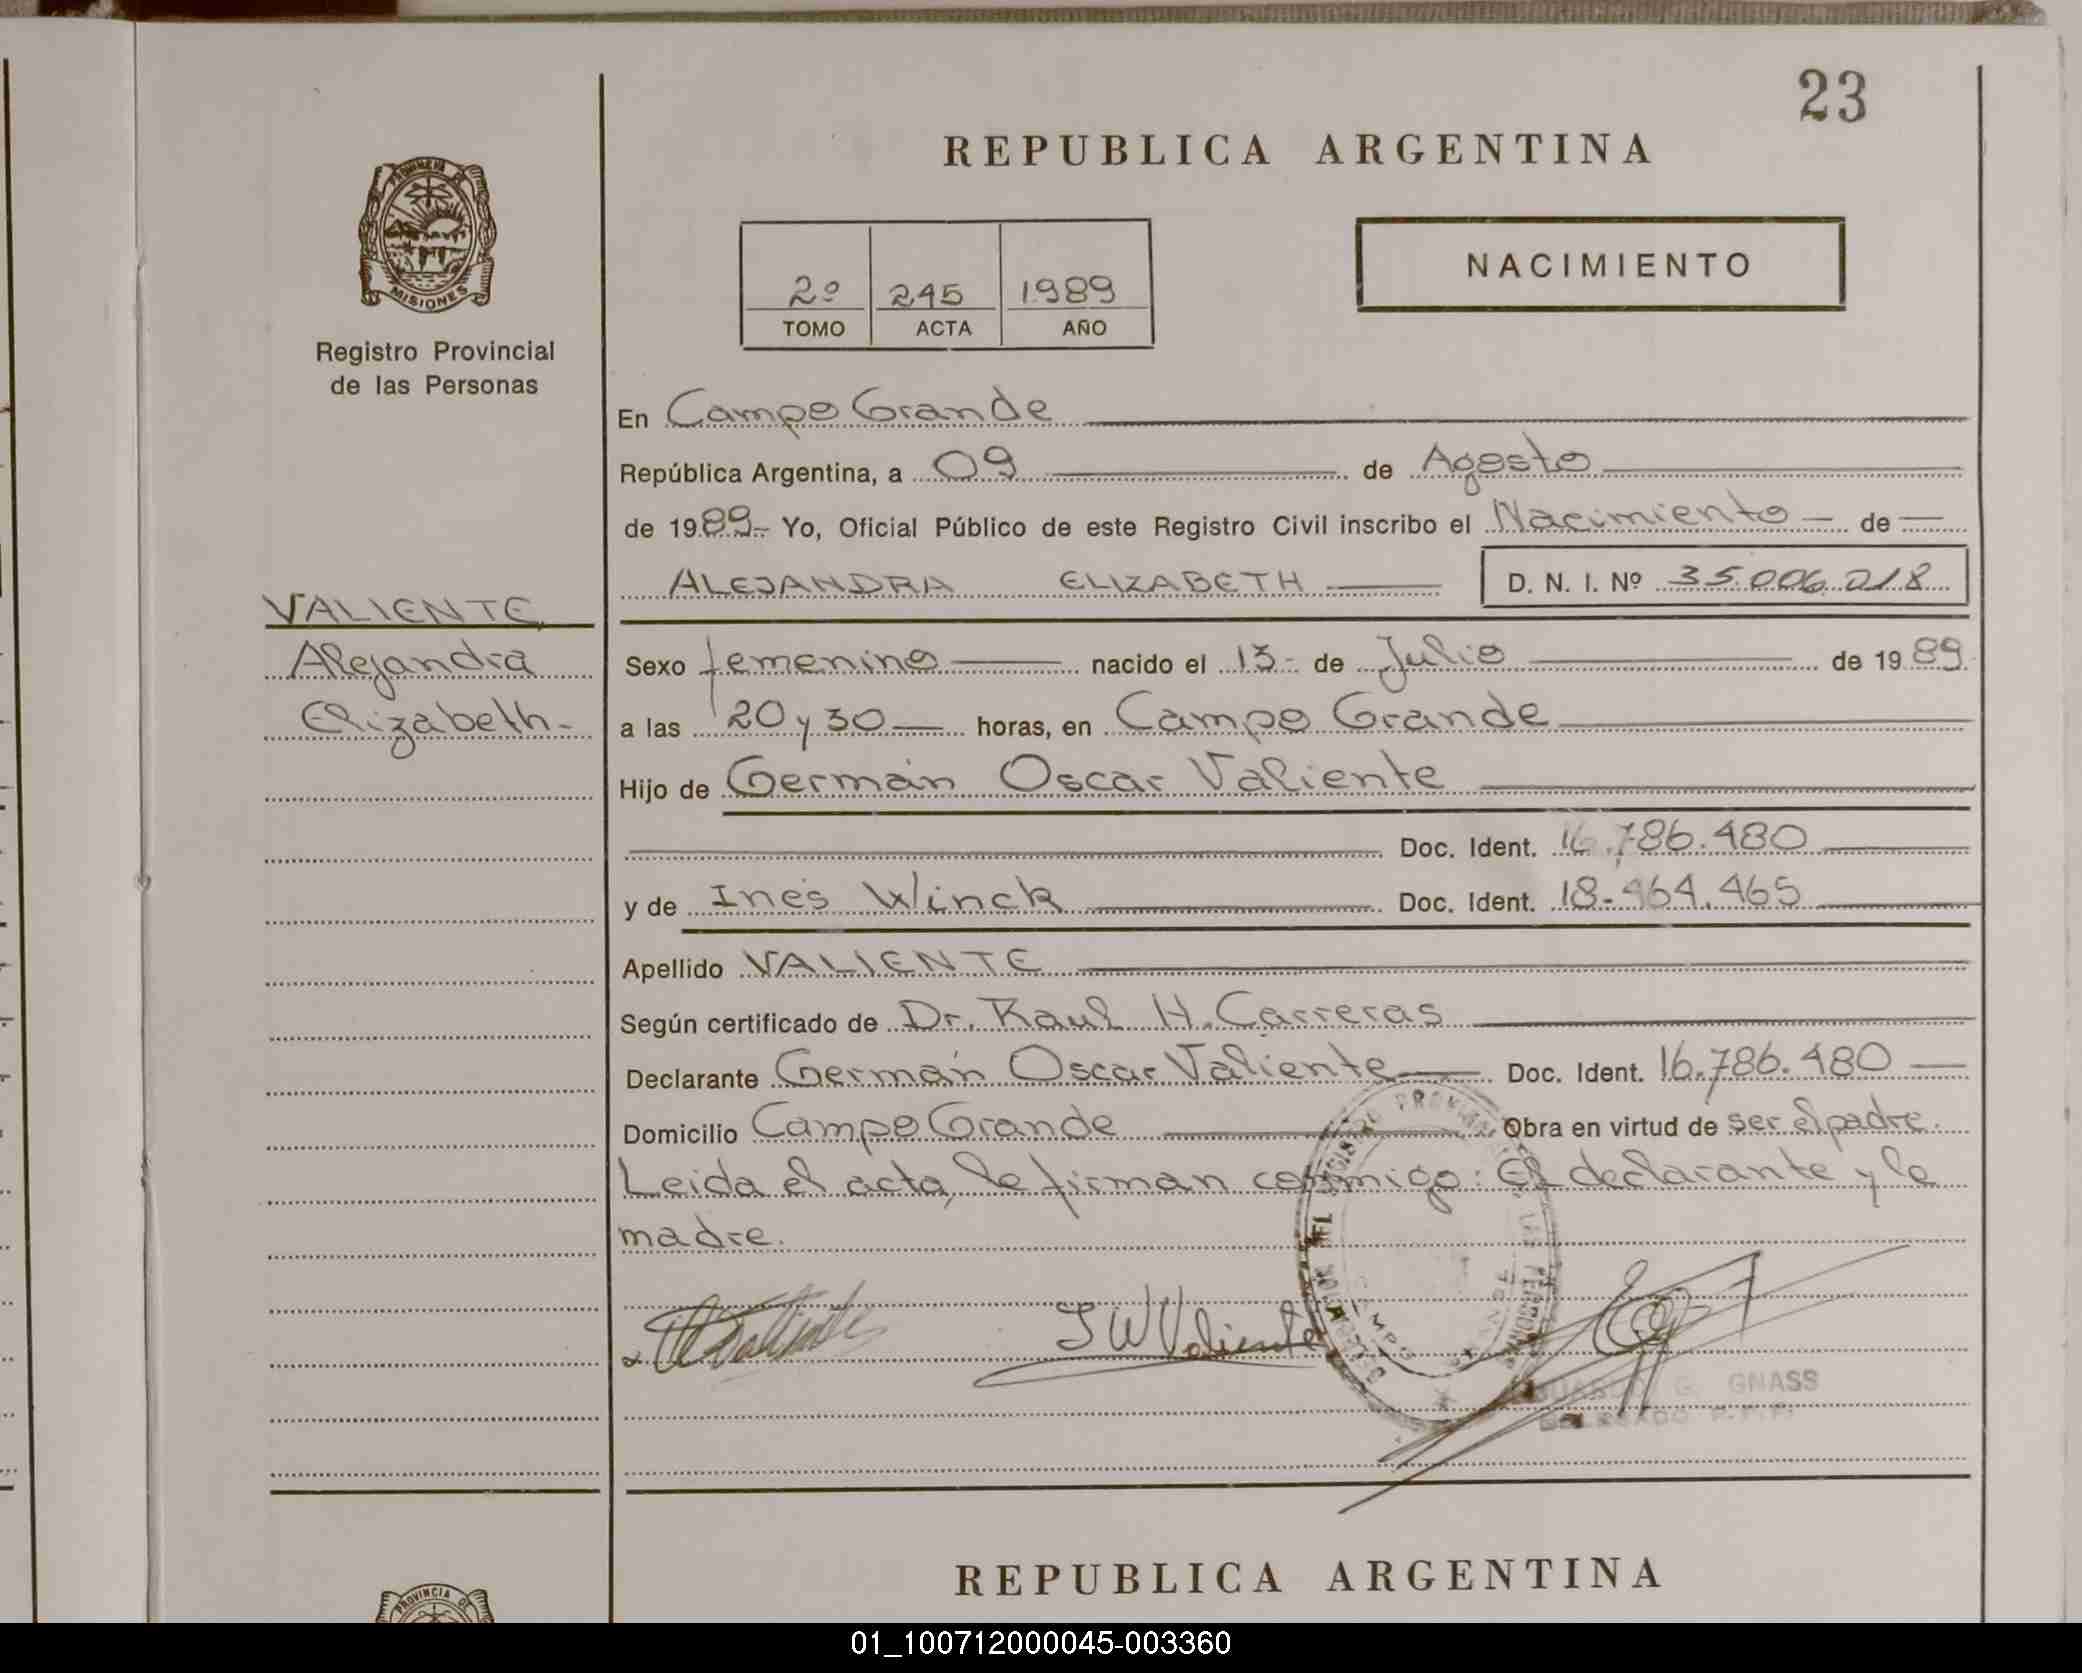 23
REPUBLICA ARGENTINA
PROVINCIA DE
MISIONES
Registro Provincial
de las Personas
2º 245 1989
TOMO ACTA AÑO
NACIMIENTO
En Campo Grande
República Argentina, a 09 de Agosto
de 1989- Yo, Oficial Público de este Registro Civil inscribo el Nacimiento — de —
ALEJANDRA ELIZABETH D. N. I. Nº 35.006.018
VALIENTE
Alejandra
Elizabeth-
Sexo femenino nacido el 13- de Julio de 1989
a las 20 y 30 horas, en Campo Grande
Hijo de Germán Oscar Valiente
Doc. Ident. 16.786.480
y de Inés Winck Doc. Ident. 18.464.465
Apellido VALIENTE
Según certificado de Dr. Raul H. Carreras
Declarante Germán Oscar Valiente Doc. Ident. 16.786.480
Domicilio Campo Grande Obra en virtud de ser el padre.
Leida el acta, la firman conmigo: El declarante y la
madre.
I W Valiente
G. GNASS
DELEGADO R.P.P.
REPUBLICA ARGENTINA
PROVINCIA DE
01_100712000045-003360